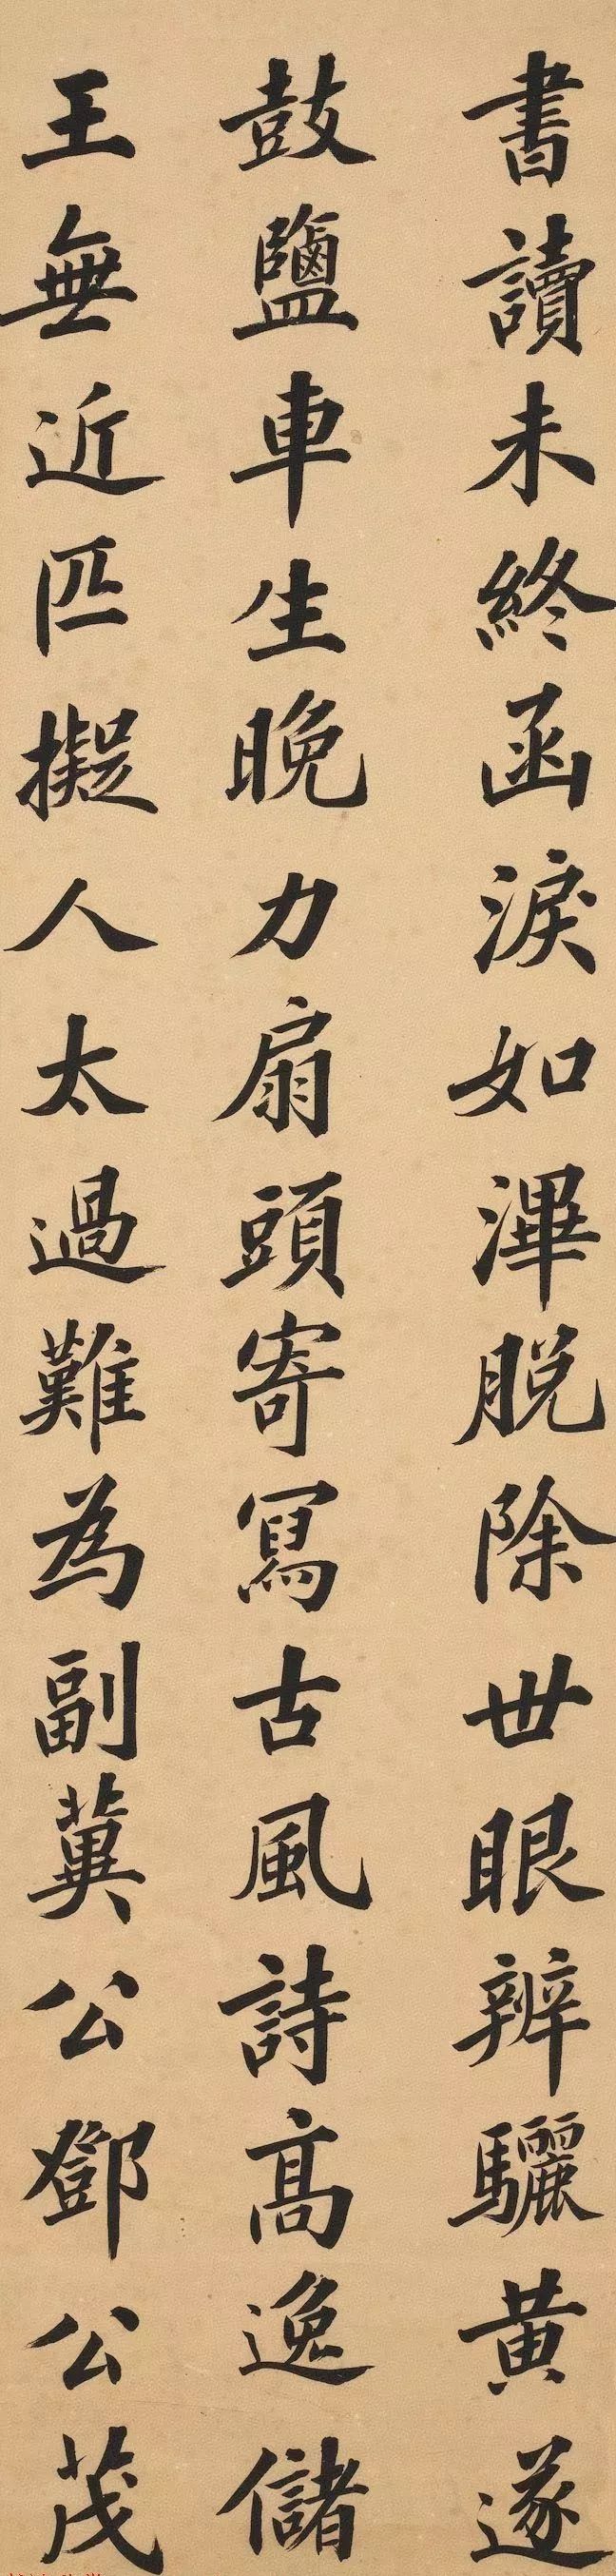 書讀未終函淚如㵥脫除世眼辨驪黃遂
鼓鹽車生晚力扇頭寄寫古風詩高逸儲
王無近匹擬人太過難為副冀公鄧公茂